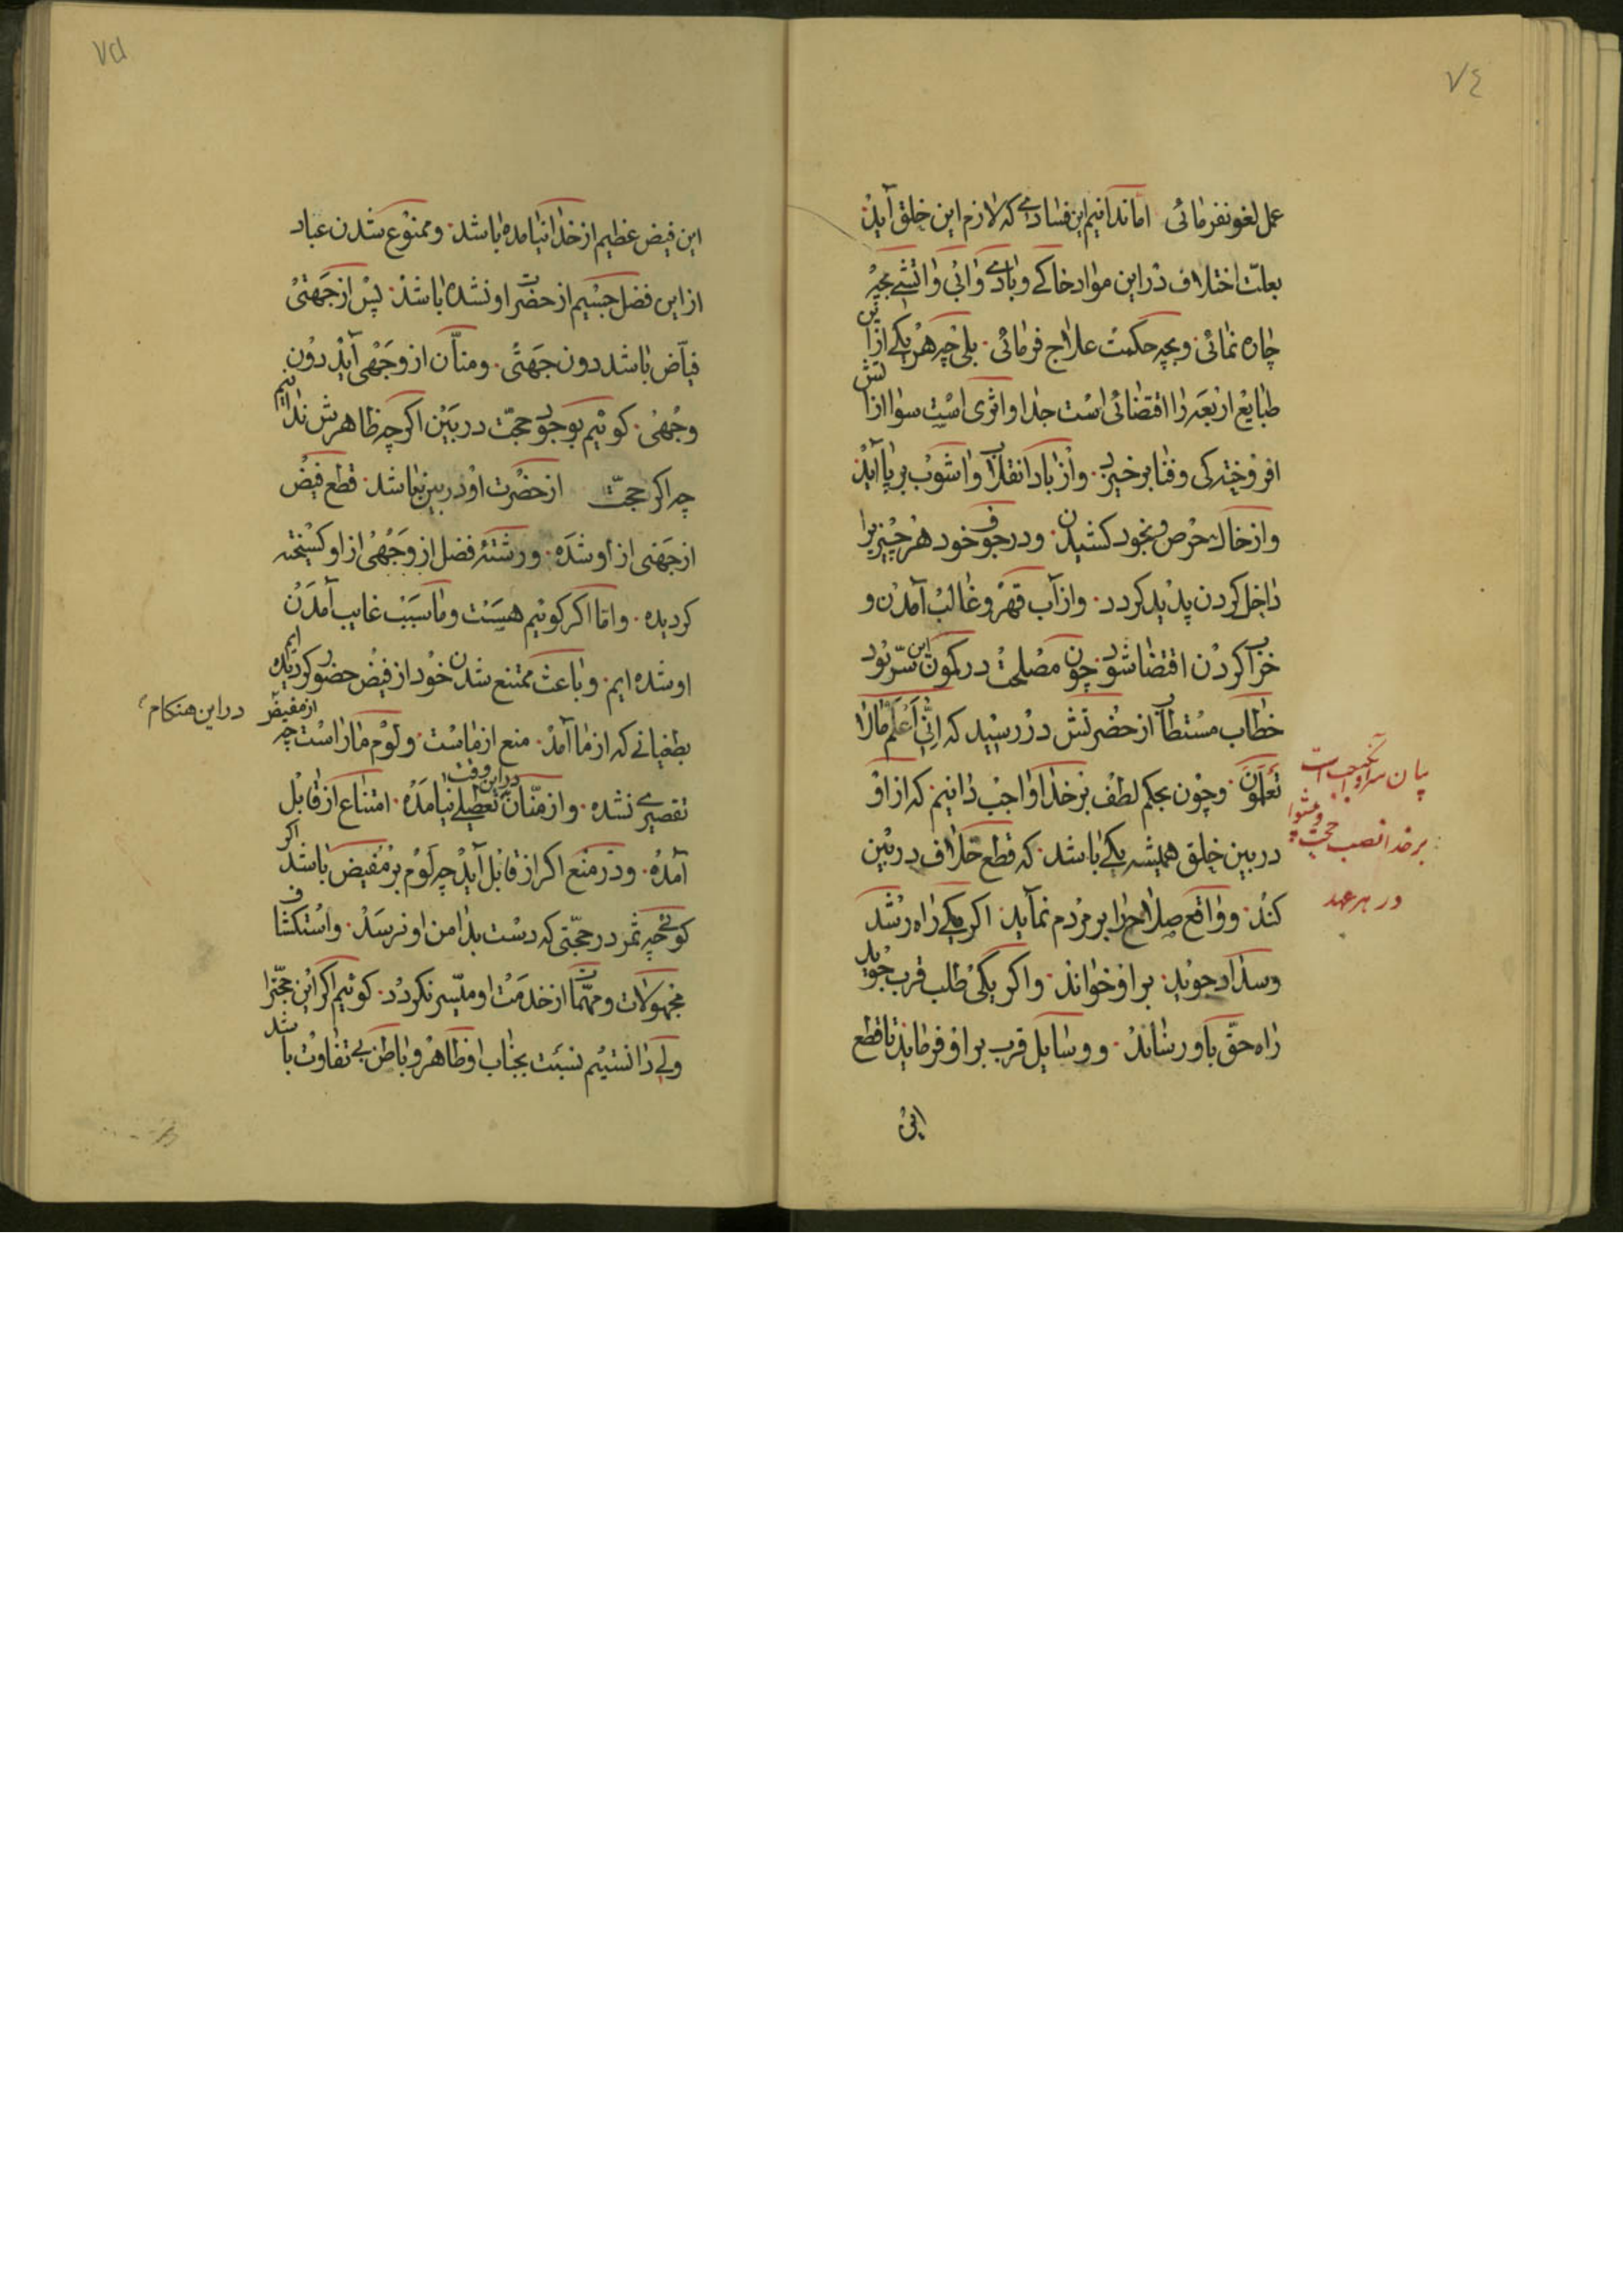 ٧٤
عمل لغو نفرمائی اما ندانیم این فسادی که لازم این خلق آید
بعلّت اختلاف در این مواد خاکے و بادے و ابی و اتشے بچه
چاره نمائی. و بچه حکمت علاج فرمائی. بلی چه هر یکے از این
طبایع اربعه را اقتضائی است جدا و اثری است سوا از اتش
افروختکی و فنا برخیزد. و از باد انقلاب و اشوب بر پا آید
و از خاک حرص و بخود کشیدن. و در جوف خود هر چیز را
داخل کردن پدید کردد. و از آب قهر و غالب آمدن و
خراب کردن اقتضا شود. چون مصلحت در کمون این سرّ بود
خطاب مستطاب از حضرتش در رسید که انّی اعلم ما لا
تعلمون. و چون بحکم لطف بر خدا واجب دانیم که از او
در بین خلق همیشه یکے باشد. که قطع خلاف در بین
کند. و واقع صلاح را بر مردم نماید. اکر یکے راه رشد
و سداد جوید. بر او خواند. و اکر یکی طلب قرب جوید
راه حقّ باو رساند. و وسایل قرب بر او فرماید تا قطع
بیان سر آنکه واجب است
بر خدا نصب حجت و پیشوا
در هر عهد
این
٧۵
این فیض عظیم از خدا نیامده باشد. و ممنوع شدن عباد
از این فضل جسیم از حضرت او نشده باشد. پس از جهتی
فیاّض باشد دون جهتی. و منّان از وجهی آید دون
وجهی. کوئیم بوجود حجّت در بین اکر چه ظاهرش ندانیم
چه اکر حجّت از حضرت او در بین نباشد. قطع فیض
از جهتی از او شده. و رشته فضل از وجهی از او کسیخته
کردیده. و امّا اکر کوئیم هست و ما سبب غایب آمدن
او شده ایم. و باعث ممتنع شدن خود از فیض حضور کردیده ایم
بطغیانے که از ما آمد. منع از ماست. و لوم ما راست چه از مفیض در این هنکام
تقصیرے نشده. و از منّان در این وقت تعطیلے نیامده. امتناع از قابل
آمده. و در منع اکر از قابل آید چه لوم بر مفیض باشد اکر
کوئی چه ثمر در حجّتی که دست بدامن او نرسد. و استکشاف
مجهولات و مهمّات از خدمت او میّسر نکردد. کوئیم اکر این حجّت را
ولی دانستیم نسبت بجناب او ظاهر و باطن بی تفاوت باشد